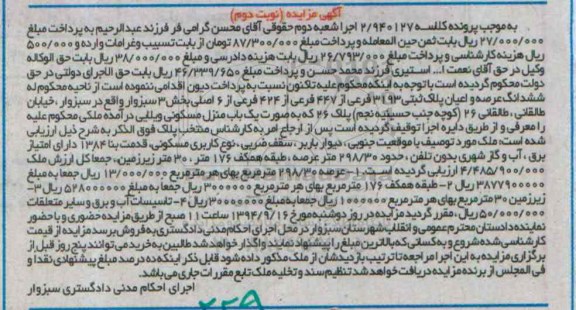 آگهی مزایده (نوبت دوم)
به موجب پرونده کلاسه ۲/۹۴۰۱۲۷ اجرا شعبه دوم حقوقی آقای محسن گرامی فر فرزند عبدالرحیم به پرداخت مبلغ
۲۷/۰۰۰/۰۰۰ ریال بابت ثمن حین المعامله و پرداخت مبلغ ۸۷/۳۰۰/۰۰۰ تومان از بابت تسبیب و غرامات وارده و ۵۰۰/۰۰۰
ریال هزینه کارشناسی و پرداخت مبلغ ۲۶/۷۹۳/۰۰۰ ریال بابت هزینه دادرسی و مبلغ ۳۸/۰۰۰/۰۰۰ ریال بابت حق الوکاله
وکیل در حق آقای نعمت ا... استیری فرزند محمدحسن و پرداخت مبلغ ۴۶/۳۳۹/۶۵۰ ریال بابت حق الاجرای دولتی در حق
دولت محکوم گردیده است با توجه به اینکه محکوم علیه تاکنون نسبت به پرداخت دیون اقدامی ننموده است از ناحیه محکوم له
ششدانگ عرصه و اعیان پلاک ثبتی ۳۱۹۳ فرعی از ۴۴۷ فرعی از ۴۲۴ فرعی از ۶ اصلی بخش ۳ سبزوار واقع در سبزوار، خیابان
طالقانی، طالقانی ۲۶ (کوچه جنب حسینیه نجم) پلاک ۲۶ که به صورت یک باب منزل مسکونی ویلایی درآمده ملکی محکوم علیه
را معرفی و از طریق دایره اجرا توقیف گردیده است پس از ارجاع امر به کارشناس منتخب پلاک فوق الذکر به شرح ذیل ارزیابی
شده است: ملک مورد توصیف با موقعیت جنوبی، دیوار باربر، سقف ضربی، نوع کاربری مسکونی، قدمت بنا ۱۳۸۴ دارای امتیاز
برق، آب و گاز شهری بدون تلفن، حدود ۲۹۸/۳۰ متر عرصه، طبقه همکف ۱۷۶ متر، ۳۰ متر زیرزمین، جمعا کل ارزش ملک
۴/۴۸۵/۹۰۰/۰۰۰ ارزیابی گردیده است. ۱- عرصه ۲۹۸/۳۰ مترمربع بهای هر مترمربع ۱۳/۰۰۰/۰۰۰ ریال جمعا به مبلغ
۳۸۷۷۹۰۰۰۰۰ ریال ۲- طبقه همکف ۱۷۶ مترمربع بهای هر مترمربع ۳۰۰۰۰۰۰ ریال جمعا به مبلغ ۵۲۸۰۰۰۰۰۰ ریال ۳-
زیرزمین ۳۰ مترمربع بهای هر مترمربع ۱۰۰۰۰۰۰ ریال جمعا به مبلغ ۳۰۰۰۰۰۰۰ ریال ۴- تاسیسات آب و برق و سایر متعلقات
۵۰/۰۰۰/۰۰۰ ریال، مقرر گردید مزایده در روز دوشنبه مورخ ۱۳۹۴/۹/۱۶ ساعت ۱۱ صبح از طریق مزایده حضوری و با حضور
نماینده دادستان محترم عمومی و انقلاب شهرستان سبزوار در محل اجرای احکام مدنی دادگستری به فروش برسد مزایده از قیمت
کارشناسی شده شروع و به کسانی که بالاترین مبلغ را پیشنهاد نمایند واگذار خواهد شد طالبین به خرید می توانند پنج روز قبل از
برگزاری مزایده به این اجرا مراجعه تا ترتیب بازدیدشان از ملک مذکور داده شود قابل ذکر اینکه ده درصد مبلغ پیشنهادی نقدا و
فی المجلس از برنده مزایده دریافت خواهد شد تنظیم سند و تخلیه ملک تابع مقررات جاری می باشد.
اجرای احکام مدنی دادگستری سبزوار